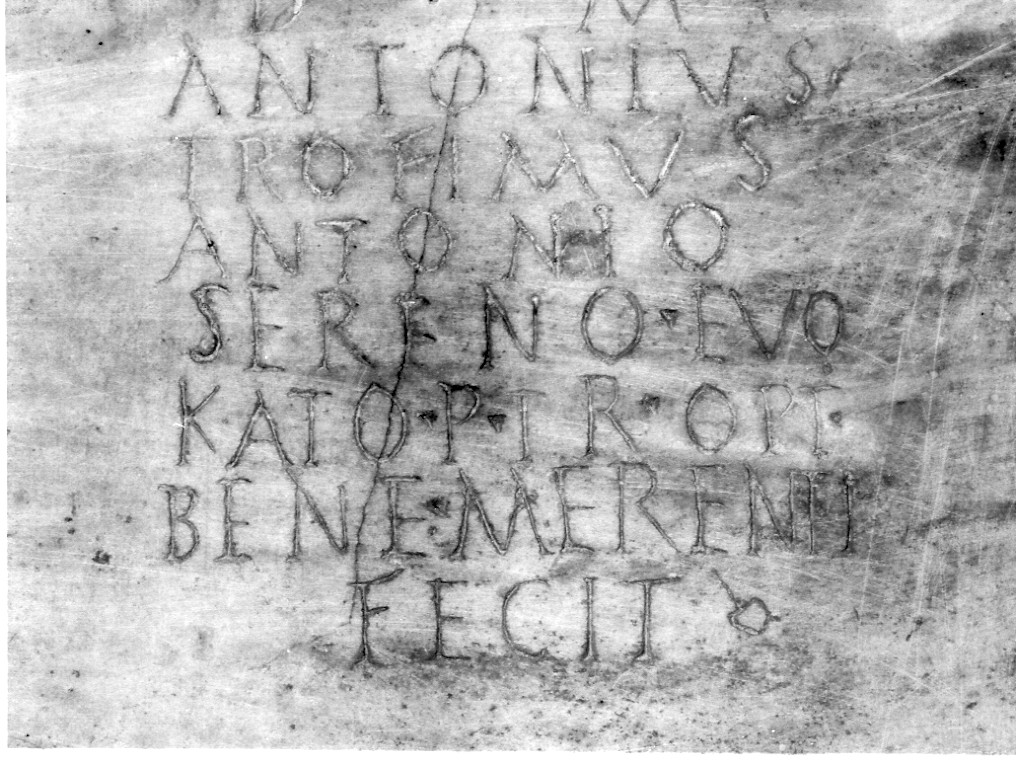 D M
ANTONIVS
TROFIMVS
ANTONHO
SERENO·EVO
KATO·P·TR·OPT·
BENE·MERENTI
FECIT